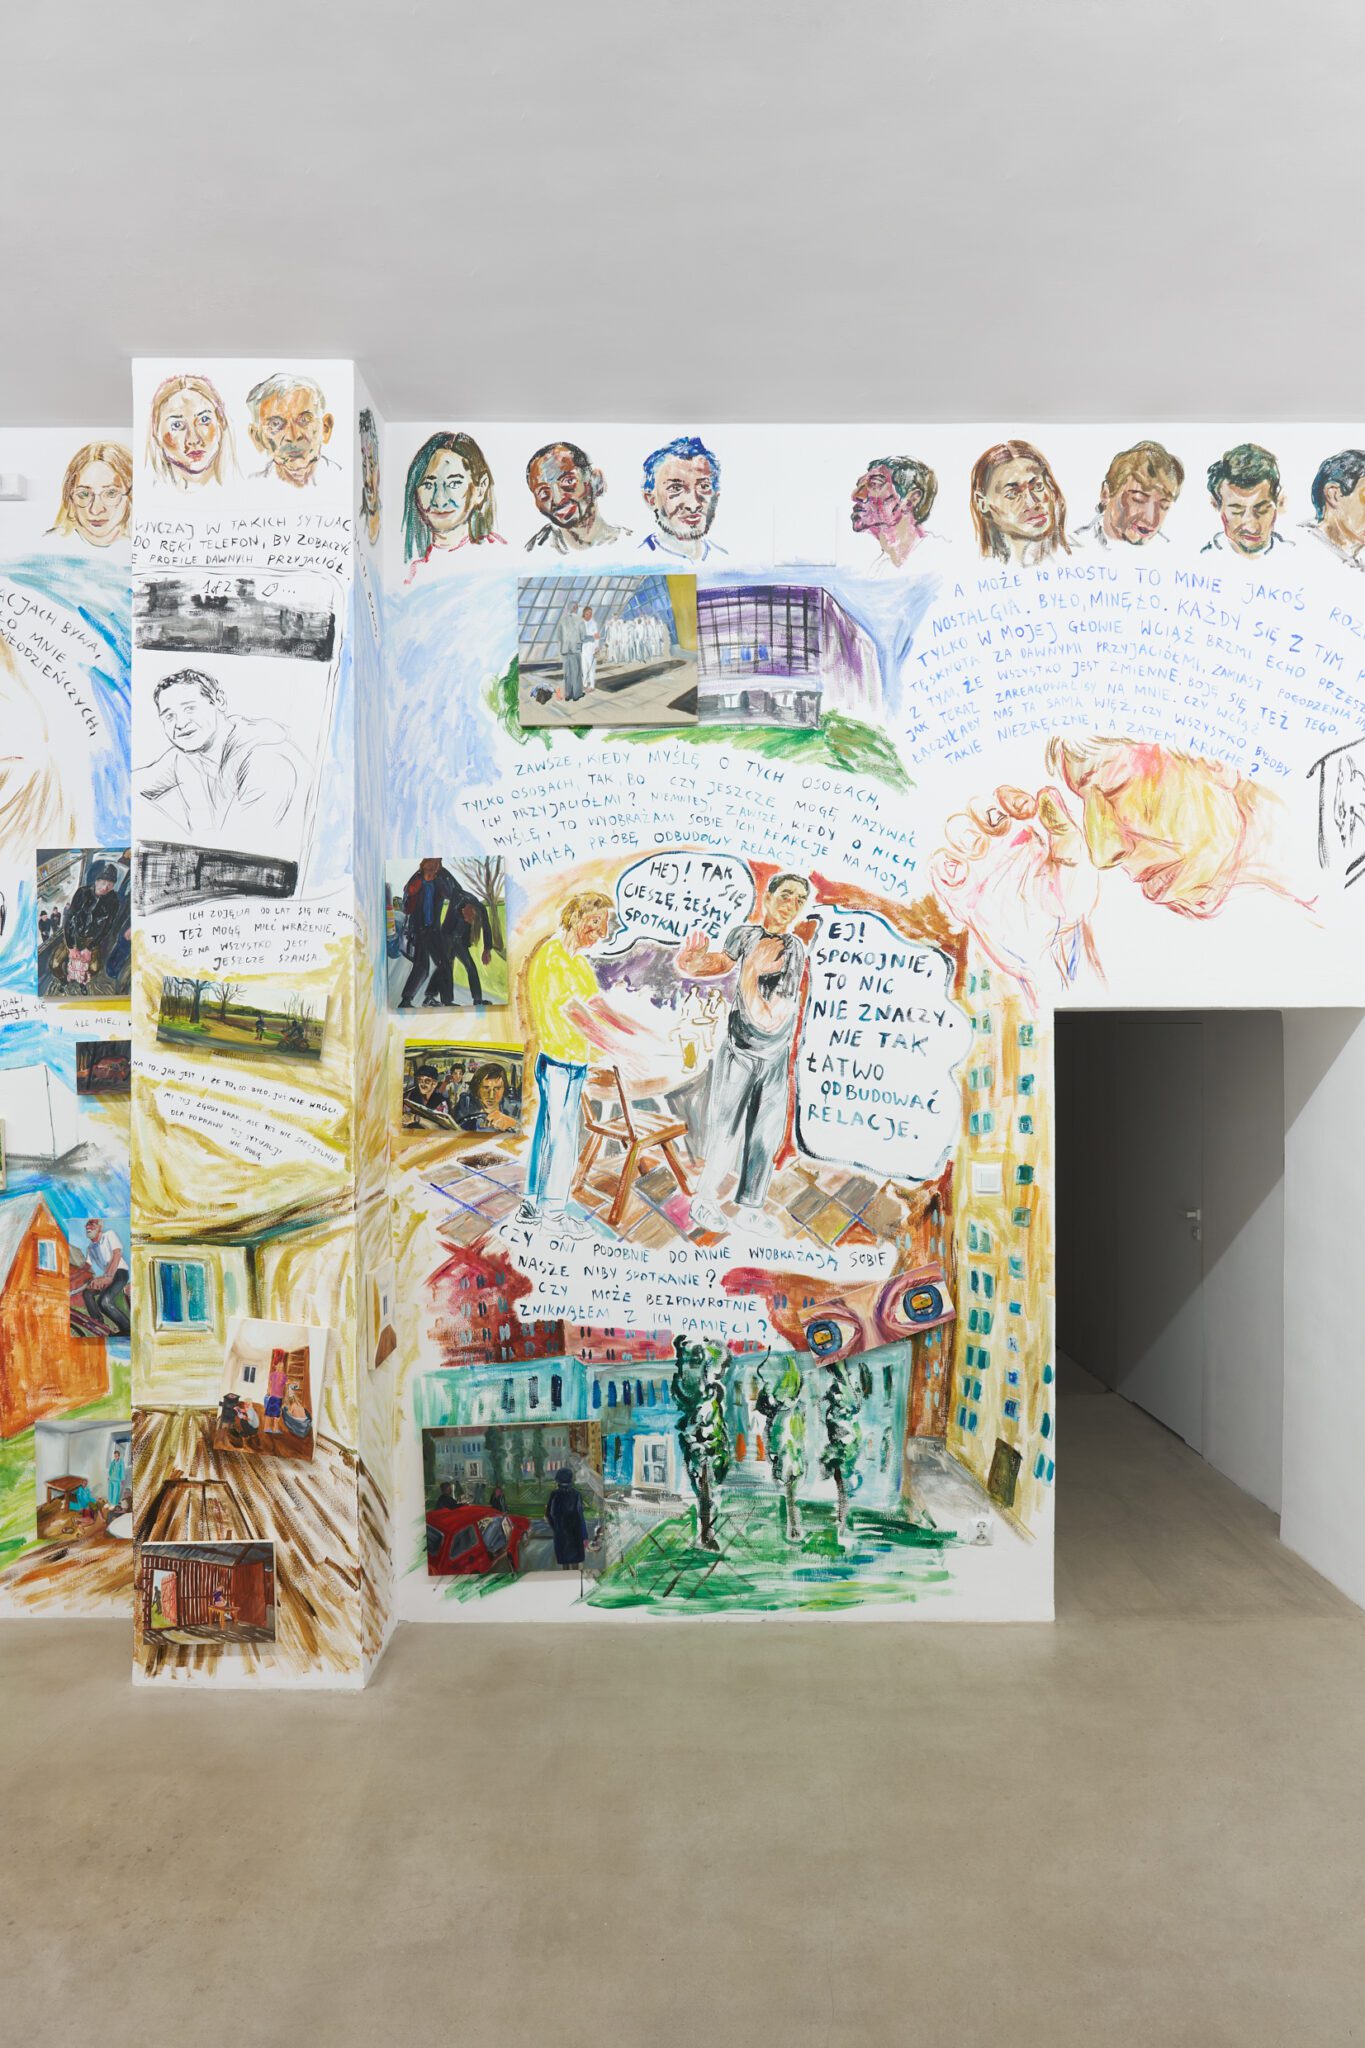 ACJACH, BYWA,
ŁO MNIE
MŁODZIEŃCZYCH,
ALE MIELI
WYCZAJ W TAKICH SYTUAC
DO RĘKI TELEFON, BY ZOBACZYĆ
E PROFILE DAWNYCH PRZYJACIÓŁ.
1 of 2
ICH ZDJĘCIA OD LAT SIĘ NIE ZMIE
TO TEŻ MOGĘ MIEĆ WRAŻENIE,
ŻE NA WSZYSTKO JEST
JESZCZE SZANSA.
NA TO, JAK JEST I ŻE TO, CO BYŁO, JUŻ NIE WRÓCI.
MI TEJ ZGODY BRAK, ALE TEŻ NIC SPECJALNIE
DLA POPRAWY TEJ SYTUACJI
NIE ROBIĘ
ZAWSZE, KIEDY MYŚLĘ O TYCH OSOBACH,
TYLKO OSOBACH, TAK, BO CZY JESZCZE MOGĘ NAZYWAĆ
ICH PRZYJACIÓŁMI? NIEMNIEJ, ZAWSZE, KIEDY O NICH
MYŚLĘ, TO WYOBRAŻAM SOBIE ICH REAKCJE NA MOJĄ
NAGŁĄ PRÓBĘ ODBUDOWY RELACJI.
HEJ! TAK
SIĘ
CIESZĘ, ŻEŚMY
SIĘ
SPOTKALI
EJ!
SPOKOJNIE,
TO NIC
NIE ZNACZY.
NIE TAK
ŁATWO
ODBUDOWAĆ
RELACJE.
CZY ONI PODOBNIE DO MNIE WYOBRAŻAJĄ SOBIE
NASZE NIBY SPOTKANIE?
CZY MOŻE BEZPOWROTNIE
ZNIKNĄŁEM Z ICH PAMIĘCI?
A MOŻE PO PROSTU TO MNIE JAKOŚ ROZ
NOSTALGIA. BYŁO, MINĘŁO. KAŻDY SIĘ Z TYM P
TYLKO W MOJEJ GŁOWIE WCIĄŻ BRZMI ECHO PRZESZ
TĘSKNOTA ZA DAWNYMI PRZYJACIÓŁMI, ZAMIAST POGODZENIA SI
Z TYM, ŻE WSZYSTKO JEST ZMIENNE. BOJĘ SIĘ TEŻ TEGO,
JAK TERAZ ZAREAGOWALIBY NA MNIE. CZY WCIĄŻ
ŁĄCZYŁABY NAS TA SAMA WIĘŹ, CZY WSZYSTKO BYŁOBY
TAKIE NIEZRĘCZNE, A ZATEM KRUCHE?